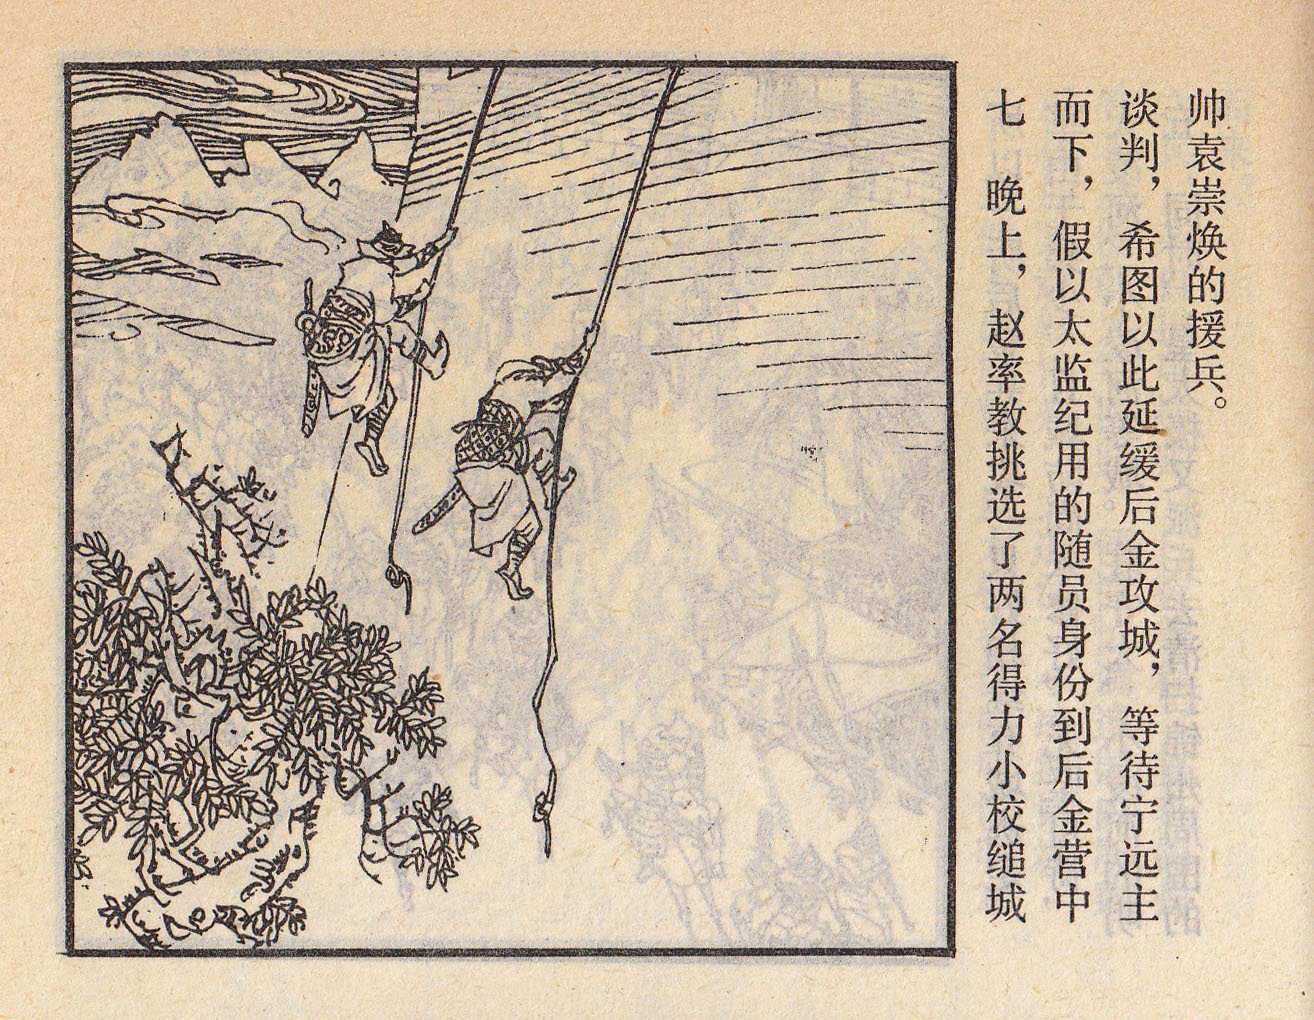 七 晚上，赵率教挑选了两名得力小校缒城
而下，假以太监纪用的随员身份到后金营中
谈判，希图以此延缓后金攻城，等待宁远主
帅袁崇焕的援兵。